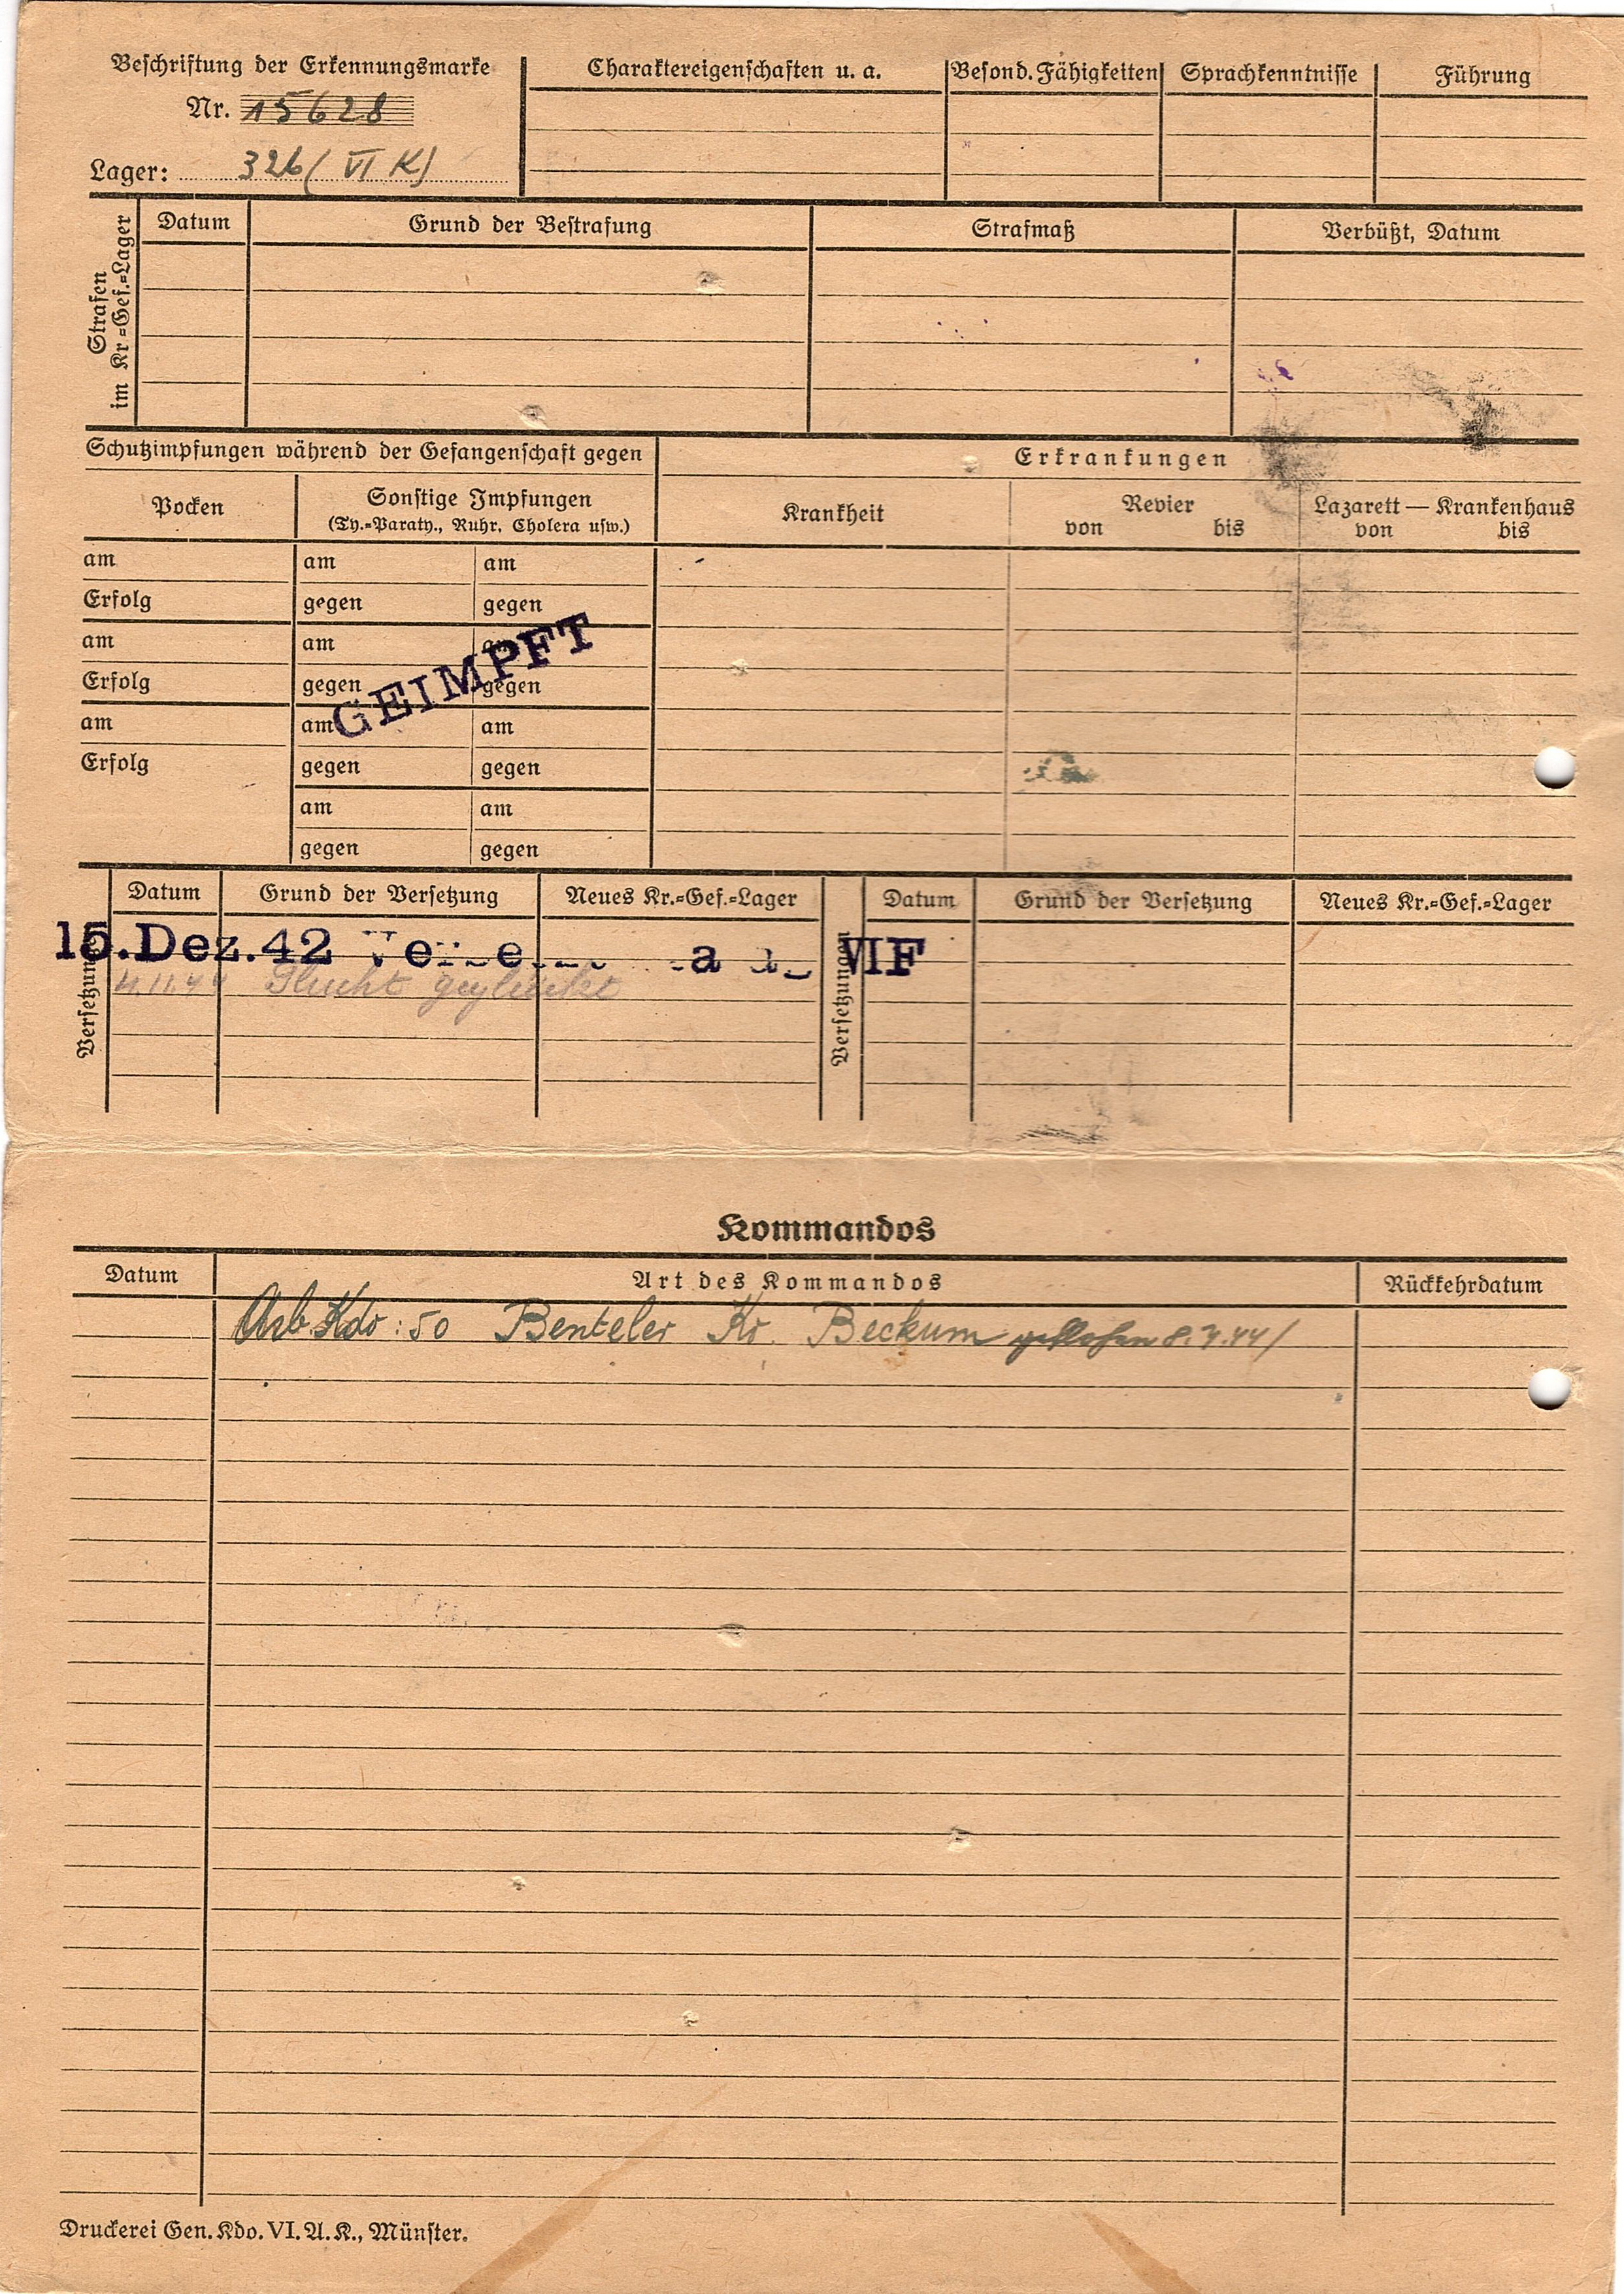 Beschriftung der Erkennungsmarke
Nr. 15628
Lager: 326 (VI K)
Charaktereigenschaften u. a.
Besond. Fähigkeiten
Sprachkenntnisse
Führung
Strafen
im Kr.-Gef.-Lager
Datum
Grund der Bestrafung
Strafmaß
Verbüßt, Datum
Schutzimpfungen während der Gefangenschaft gegen
Erkrankungen
Pocken
Sonstige Impfungen
(Ty.-Paraty., Ruhr, Cholera usw.)
Krankheit
Revier
von bis
Lazarett — Krankenhaus
von bis
am am am
Erfolg gegen gegen
am am am
Erfolg gegen gegen
GEIMPFT
am am am
Erfolg gegen gegen
am am
gegen gegen
Versetzungen
Datum Grund der Versetzung Neues Kr.-Gef.-Lager
Versetzungen
Datum Grund der Versetzung Neues Kr.-Gef.-Lager
15.Dez.42 VIF
4.11.44 Flucht geglückt
Kommandos
Datum Art des Kommandos Rückkehrdatum
Arb. Kdo: 50 Benteler Kr. Beckum geflohen 8.7.44/
Druckerei Gen. Kdo. VI. A. K., Münster.